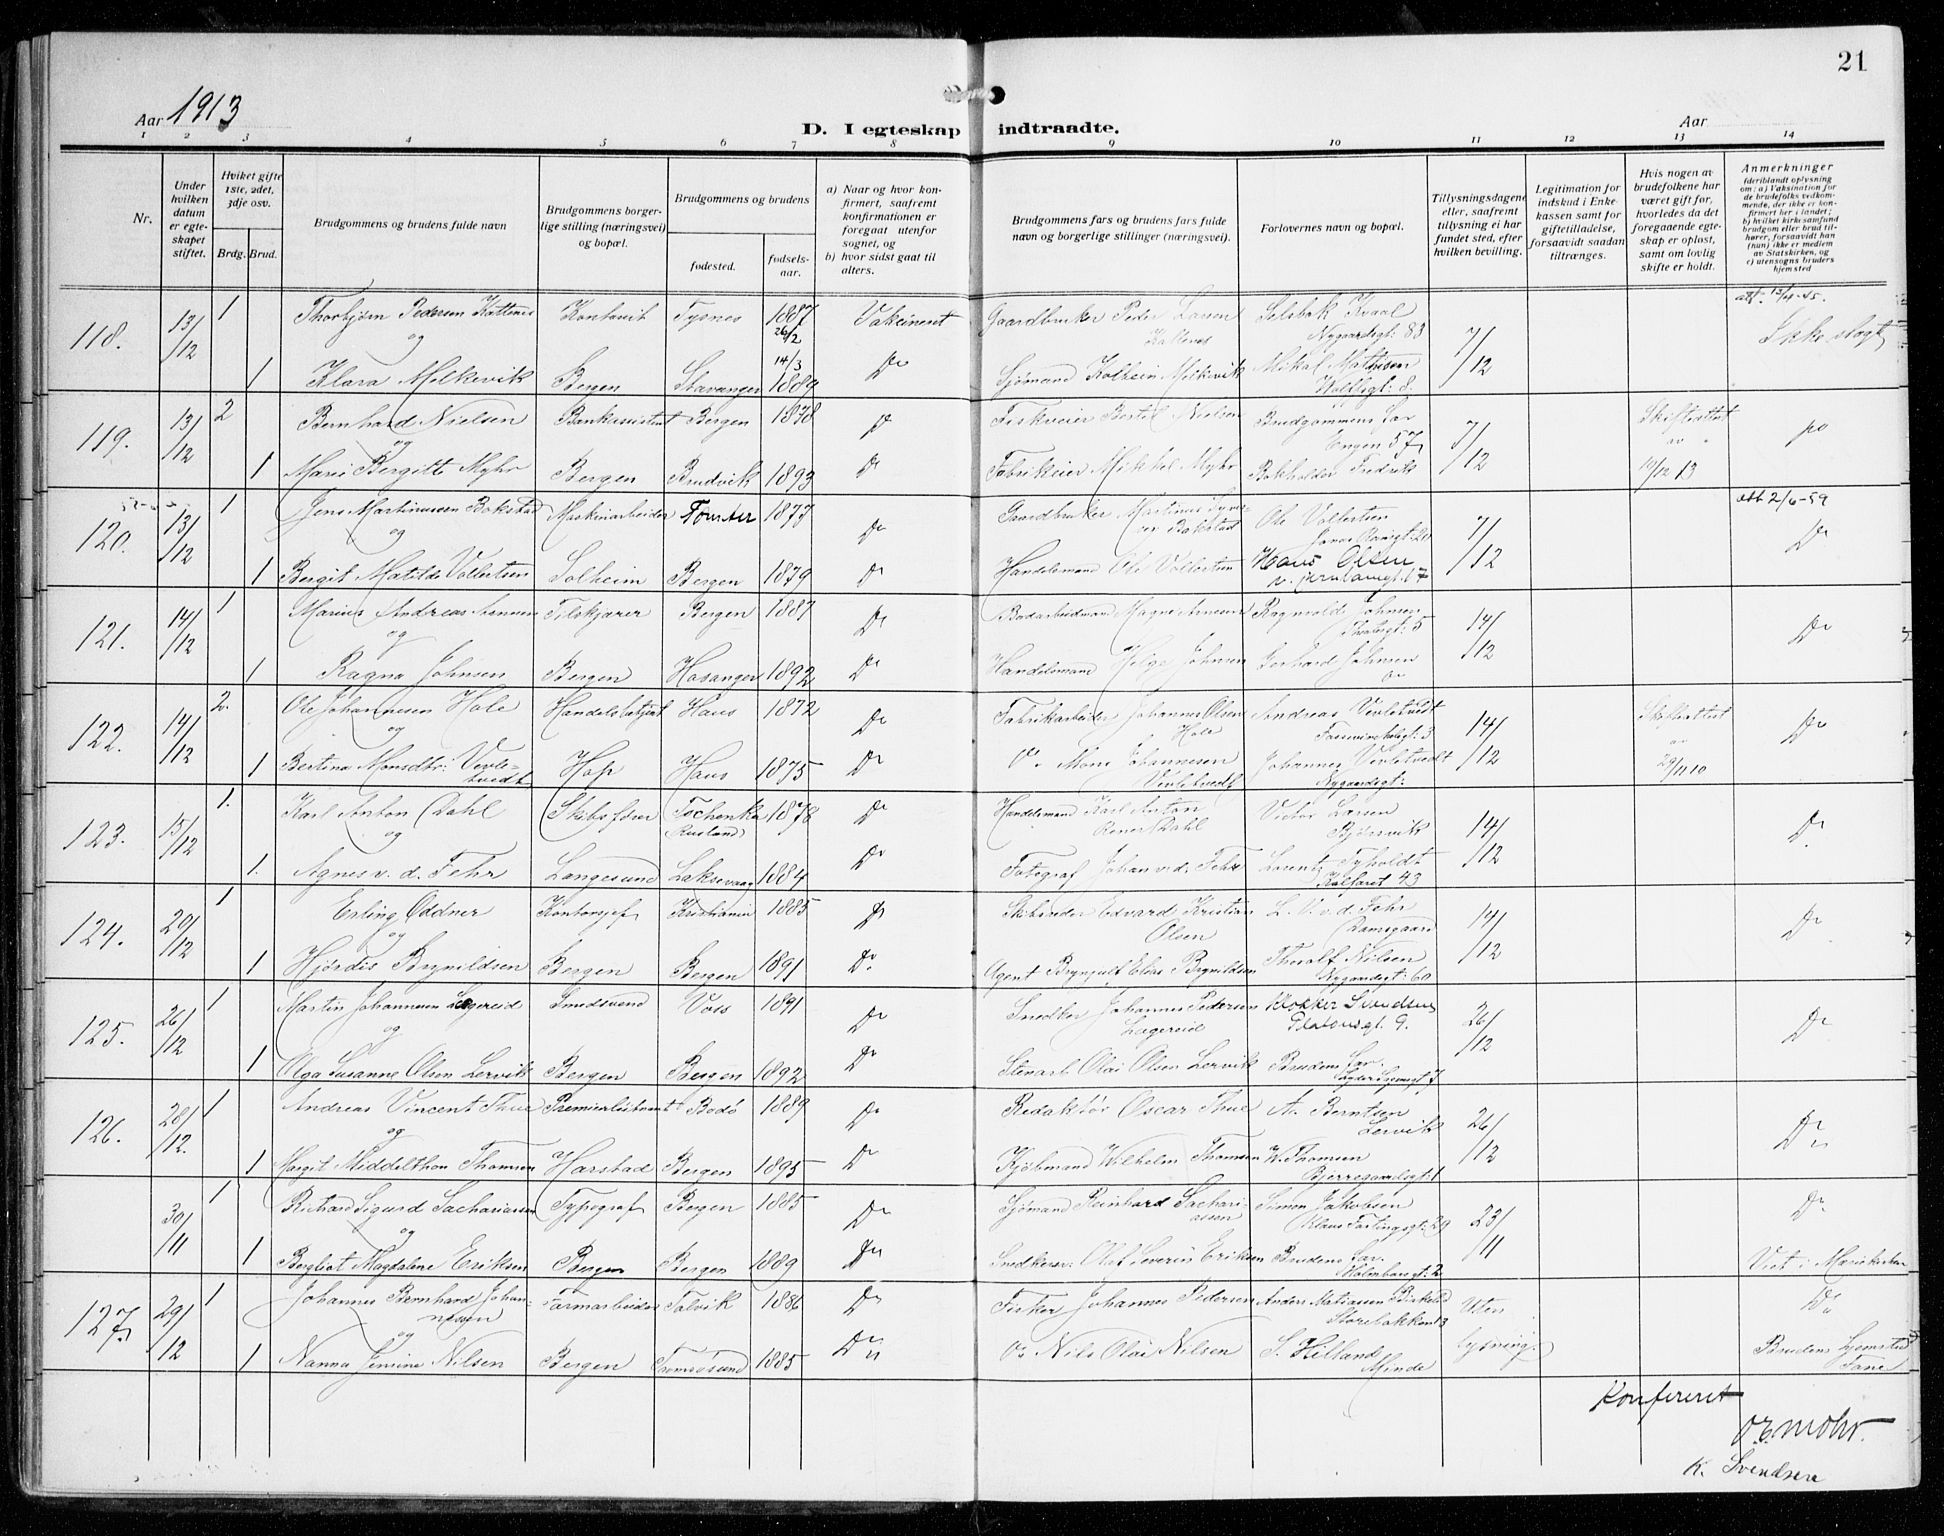 21
Aar 1913
Aar
D. I egteskap indtraadte.
1 2 3 4 5 6 7 8 9 10 11 12 13 14
Nr.
Under hvilken datum er egteskapet stiftet.
Hvilket gifte 1ste, 2det, 3dje osv.
Brdg. Brud.
Brudgommens og brudens fulde navn
Brudgommens borgerlige stilling (næringsvei) og bopæl.
Brudgommens og brudens
fødested.
fødselsaar.
a) Naar og hvor konfirmert, saafremt konfirmationen er foregaat utenfor sognet, og
b) hvor sidst gaat til alters.
Brudgommens fars og brudens fars fulde navn og borgerlige stillinger (næringsvei).
Forlovernes navn og bopæl.
Tillysningsdagene eller, saafremt tillysning ei har fundet sted, efter hvilken bevilling.
Legitimation for indskud i Enkekassen samt for giftetilladelse, forsaavidt saadan tiltrænges.
Hvis nogen av brudefolkene har været gift før, hvorledes da det foregaaende egteskap er opløst, samt om lovlig skifte er holdt.
Anmerkninger
(deriblandt oplysning om: a) Vaksination for de brudefolks vedkommende, der ikke er konfirmert her i landet; b) hvilket kirkesamfund brudgom eller brud tilhører, forsaavidt han (hun) ikke er medlem av Statskirken, og c) utensogns bruders hjemsted
118. 13/12 1 Thorbjørn Pedersen Kattenes Kontorist Tysnes 1887 26/2 Vakcinert Gaardbruker Peder Larsen Kattenes Selsbak Kvaal Nygaardsgt: 83 7/12 att. 13/4-45. Ikke slegt
og
1 Klara Melkevik Bergen Stavanger 14/3 1889 Do Sjömand Kolbein Melkevik Mikal Mathisen Wolffsgt: 8.
119. 13/12 2 Bernhard Nielsen Bankassistent Bergen 1878 Do Bertel Nielsen Brudgommens Far Engen 57 7/12 Skifteattest av 10/12 13 Do
og
1 Marie Bergitte Myhr Bergen Bruvik 1893 Do Fabrikeier Mikkel Myhr Bokholder Fredrik
120. 13/12 1 Jens Martinusen Bakstad Maskinarbeider Tomter 1877 Do Gaardbruker Martinus Bakstad Ole Vollertsen 7/12 att 2/6-59 Do
og
1 Bergit Matilde Vollertsen Solheim Bergen 1879 Do Handelsmand Ole Vollertsen Hans Olsen
121. 14/12 1 Marius Andreas Arnesen Filskjærer Bergen 1887 Do Magne Arnesen Ragnvald Johnsen Theatergt: 5 14/12 Do
og
1 Ragna Johnsen Bergen Hosanger 1892 Do Handelsmand Helge Johnsen Gerhard Johnsen
122. 14/12 2. Ole Johannesen Hole Handelsbetjent Haus 1872 Do Fabrikarbeider Johannes Olsen Hole Andreas Vevletvedt 14/12 Skifteattest av 29/11 10 Do
og
1 Bertina Monsdtr: Vevletvedt Hop Haus 1875 Do Do Mons Johannesen Vevletvedt Johannes Vevletvedt Nygaardsgt:
123. 15/12 1. Karl Anton Dahl Skibsfører Tochenka (Rusland) 1878 Do Handelsmand Karl Anton Dahl Victor Larsen Bjørsvik 14/12 Do
og
1. Agnes v. d. Fehr Langesund Laksevaag 1884 Do Fotograf Johan v. d. Fehr Lorentz Kalfaret 43
124. 20/12 1 Erling Oddner Kontorsjef Kristiania 1885 Do Skibsreder Edvard Kristian Olsen v. d. Fehr Damsgaard 14/12 Do
og
1 Hjørdis Brynildsen Bergen Bergen 1891 Do Agent Brynjulf Elias Brynildsen Thoralf Nilsen Nygaardsgt: 60
125. 26/12 1 Martin Johannesen Lægereid Smedsvend Voss 1891 Do Snedker Johannes Pedersen Lægereid Klokker Svendsen Platousgt. 9. 26/12 Do
og
1 Olga Susanne Olsen Lervik Bergen Bergen 1892 Do Stenarb. Olai Olsen Lervik Brudens Far.
126. 28/12. 1 Andreas Vincent Thue Premierløitnant Bodø 1889 Do Redaktør Oscar Thue A. Berntsen Lervik 26/12 Do
og
1 Margit Middelthon Thomsen Harstad Bergen 1895 Do Kjøbmand Wilhelm Thomsen W. Thomsen Bjerregaardsgt: 1
30/11 1 Richard Sigurd Sachariassen Typograf Bergen 1885 Do Sjømand Reinhard Sachariassen Simon Jakobsen Klaus Fastingsgt: 29 23/11 Do
og
1 Bergliot Magdalene Eriksen Bergen Bergen 1889 Do Olaf Severin Eriksen Brudens Far. Viet i Mariekirken
127. 29/12 1 Johannes Bernhard Johannesen Formarbeider Talvik 1886 Do Fisker Johannes Pedersen Anders Matiassen Uten lysning. Do
og
1 Nanna Jensine Nilsen Bergen Tromsøsund 1885 Do Do Nils Olai Nilsen S. Hilland Minde Brudens hjemsted Fane
Konfereret
O.E. Mohr.
K. Svendsen